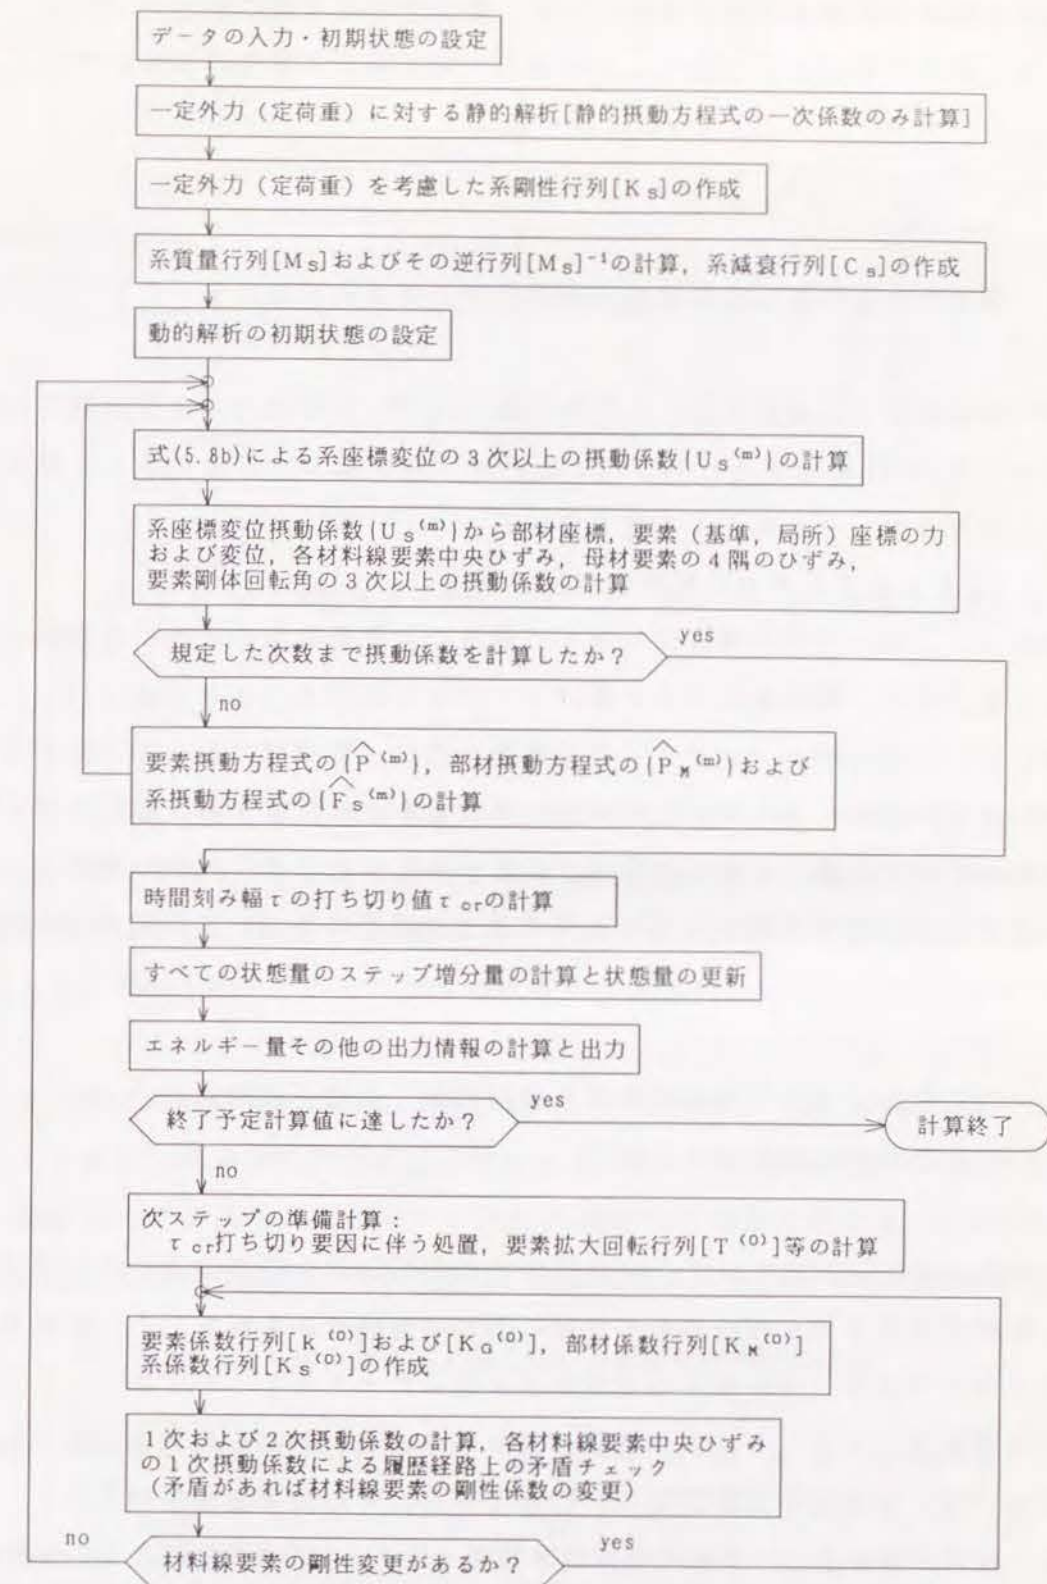 データの入力・初期状態の設定
一定外力（定荷重）に対する静的解析[静的摂動方程式の一次係数のみ計算]
一定外力（定荷重）を考慮した系剛性行列[Ks]の作成
系質量行列[Ms]およびその逆行列[Ms]⁻¹の計算，系減衰行列[Cs]の作成
動的解析の初期状態の設定
式(5.8b)による系座標変位の3次以上の摂動係数{Us⁽ᵐ⁾}の計算
系座標変位摂動係数{Us⁽ᵐ⁾}から部材座標，要素（基準，局所）座標の力
および変位，各材料線要素中央ひずみ，母材要素の4隅のひずみ，
要素剛体回転角の3次以上の摂動係数の計算
yes
規定した次数まで摂動係数を計算したか？
no
要素摂動方程式の{P̂⁽ᵐ⁾}，部材摂動方程式の{P̂ᴍ⁽ᵐ⁾}および
系摂動方程式の{F̂s⁽ᵐ⁾}の計算
時間刻み幅τの打ち切り値τcrの計算
すべての状態量のステップ増分量の計算と状態量の更新
エネルギー量その他の出力情報の計算と出力
yes
終了予定計算値に達したか？
計算終了
no
次ステップの準備計算：
τcr打ち切り要因に伴う処置，要素拡大回転行列[T⁽⁰⁾]等の計算
要素係数行列[k⁽⁰⁾]および[KG⁽⁰⁾]，部材係数行列[KM⁽⁰⁾]
系係数行列[Ks⁽⁰⁾]の作成
1次および2次摂動係数の計算，各材料線要素中央ひずみ
の1次摂動係数による履歴経路上の矛盾チェック
（矛盾があれば材料線要素の剛性係数の変更）
no
yes
材料線要素の剛性変更があるか？